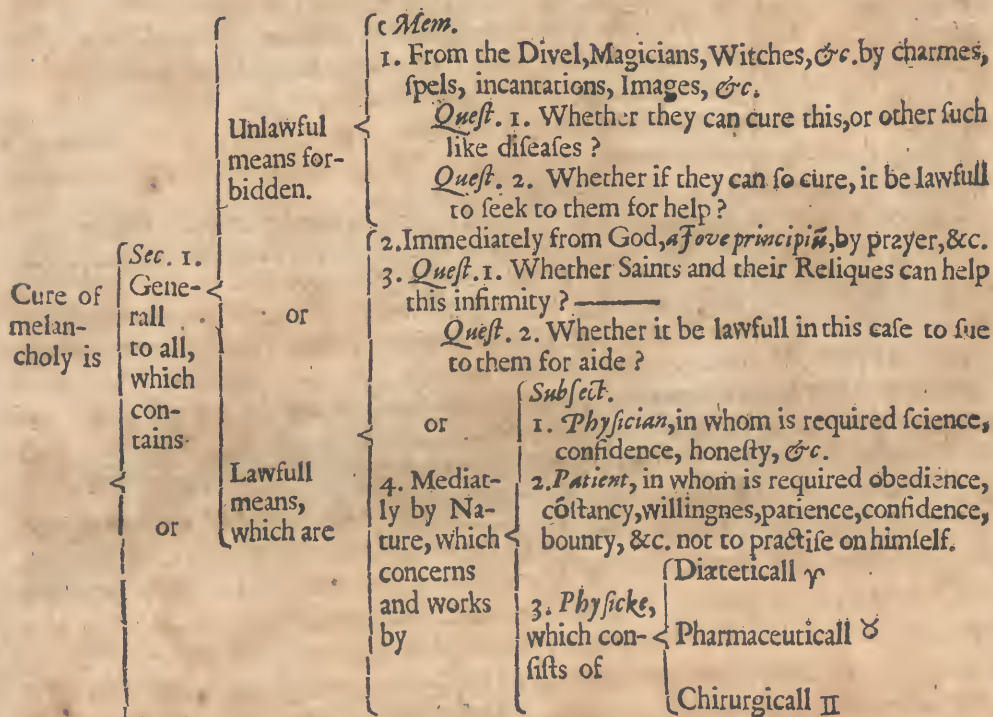 Cure of
melan-
choly is
Sec. 1.
Gene-
rall
to all,
which
con-
tains
or
Unlawful
means for-
bidden.
or
Lawfull
means,
which are
Mem.
1. From the Divel, Magicians, Witches, &c. by charmes,
ſpels, incantations, Images, &c.
Queſt. 1. Whether they can cure this, or other ſuch
like diſeaſes ?
Queſt. 2. Whether if they can ſo cure, it be lawfull
to ſeek to them for help ?
2. Immediately from God, a Jove principiũ, by prayer, &c.
3. Queſt. 1. Whether Saints and their Reliques can help
this infirmity ?
Queſt. 2. Whether it be lawfull in this caſe to ſue
to them for aide ?
or
4. Mediat-
ly by Na-
ture, which
concerns
and works
by
Subſect.
1. Phyſician, in whom is required ſcience,
confidence, honeſty, &c.
2. Patient, in whom is required obedience,
cõſtancy, willingnes, patience, confidence,
bounty, &c. not to practiſe on himſelf.
3. Phyſicke,
which con-
ſiſts of
Diæteticall ♈
Pharmaceuticall ♉
Chirurgicall ♊